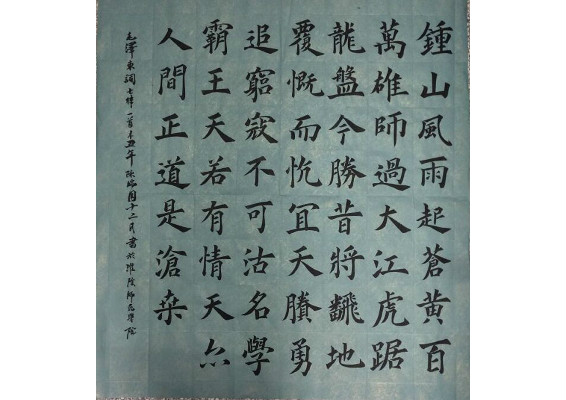 鍾山風雨起蒼黃百
萬雄師過大江虎踞
龍盤今勝昔將飜地
覆慨而忼冝天賸勇
追窮寇不可沽名學
霸王天若有情天亦
人間正道是滄桒
毛澤東詞七律一首辛丑年陳國十二月書於淮陰師范學院